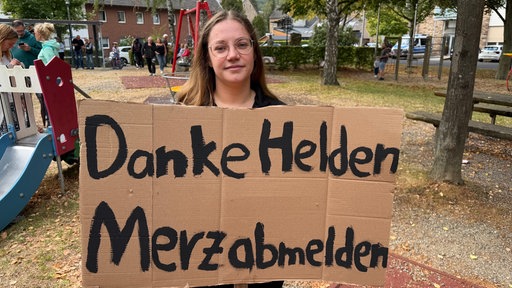 Danke Helden
Merz abmelden